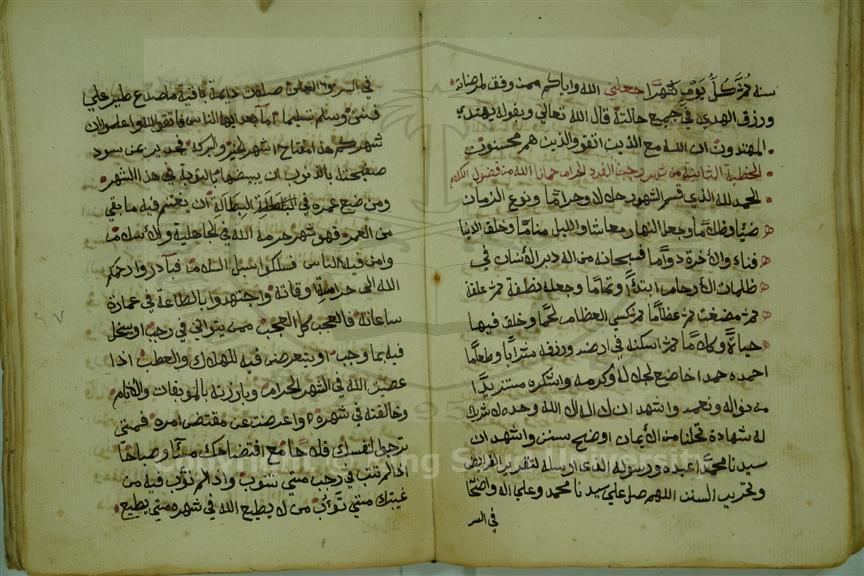 سنة ثم كل يوم شهرا جعلني الله واياكم ممن وفق لمرضاته
ورزق الهدي في جميع حالته قال الله تعالى وبقوله يهتدي
المهتدون ان الله مع الذين اتقوا والذين هم محسنون
الخطبة الثانية من شهر رجب الفرد الحرام حمانا الله من فضول الكلام
الحمد لله الذي قسم الشهور حلالا وحراما ونوع الزمان
ضياء وظلاما وجعل النهار معاشا والليل مناما وخلق الدنيا
فناء والاخرة دواما فسبحانه من اله دبر الأنسان في
ظلمات الأرحام ابتداء وتماما وجعله نطفة ثم علقة
ثم مضغة ثم عظاما ثم كسى العظام لحما وخلق فيها
حياة وكلاما ثم اسكنه في ارضه ورزقه شرابا وطعاما
احمده حمدا خاضع لجلاله وكرمه واشكره مستزيدا
من نواله ونعمه واشهد ان لا اله الا الله وحده لا شريك
له شهادة من الأيمان اوضح سنن واشهد ان
سيدنا محمدا عبده ورسوله الذي ارسله لتقرير الفرائض
وتحرير السنن اللهم صل على سيدنا محمد وعلى اله واصحابه
في السر
في السر والعلن صلاة دايمة باقية ما صدع طير على
فنن وسلم تسليما اما بعد ايها الناس فاتقوا الله واعلموا ان
شهركم هذا افتتاح اشهر الخير والبركة فجدير بمن سود
صفحته بالذنوب ان يبيضها بالتوبة في هذا الشهر
ومن ضيع عمره في البطالة ان يغتنم فيه ما بقي
من العمر فهو شهر حرمه الله في الجاهلية والأسلام
وامن فيه الناس فسلكوا سبل السلام فبادروا رحمكم
الله الى حراسة اوقاته واجتهدوا بالطاعة في عمارة
ساعاته فالعجب كل العجب ممن يتوانى في رجب او يخل
فيه بما وجب او يتعرض فيه للهلاك والعطب اذا
عصيت الله في الشهر الحرام وبارزته بالموبقات والآثام
وخالفته في شهره واعرضت عن مقتضى امره فمتى
ترجوا لنفسك فلاحا مع افتضاحك مساء وصباحا
اذا لم تتب في رجب متى تتوب واذا لم تؤب فيه من
غيبتك متى تؤب من لا يطيع الله في شهره متى يطيع